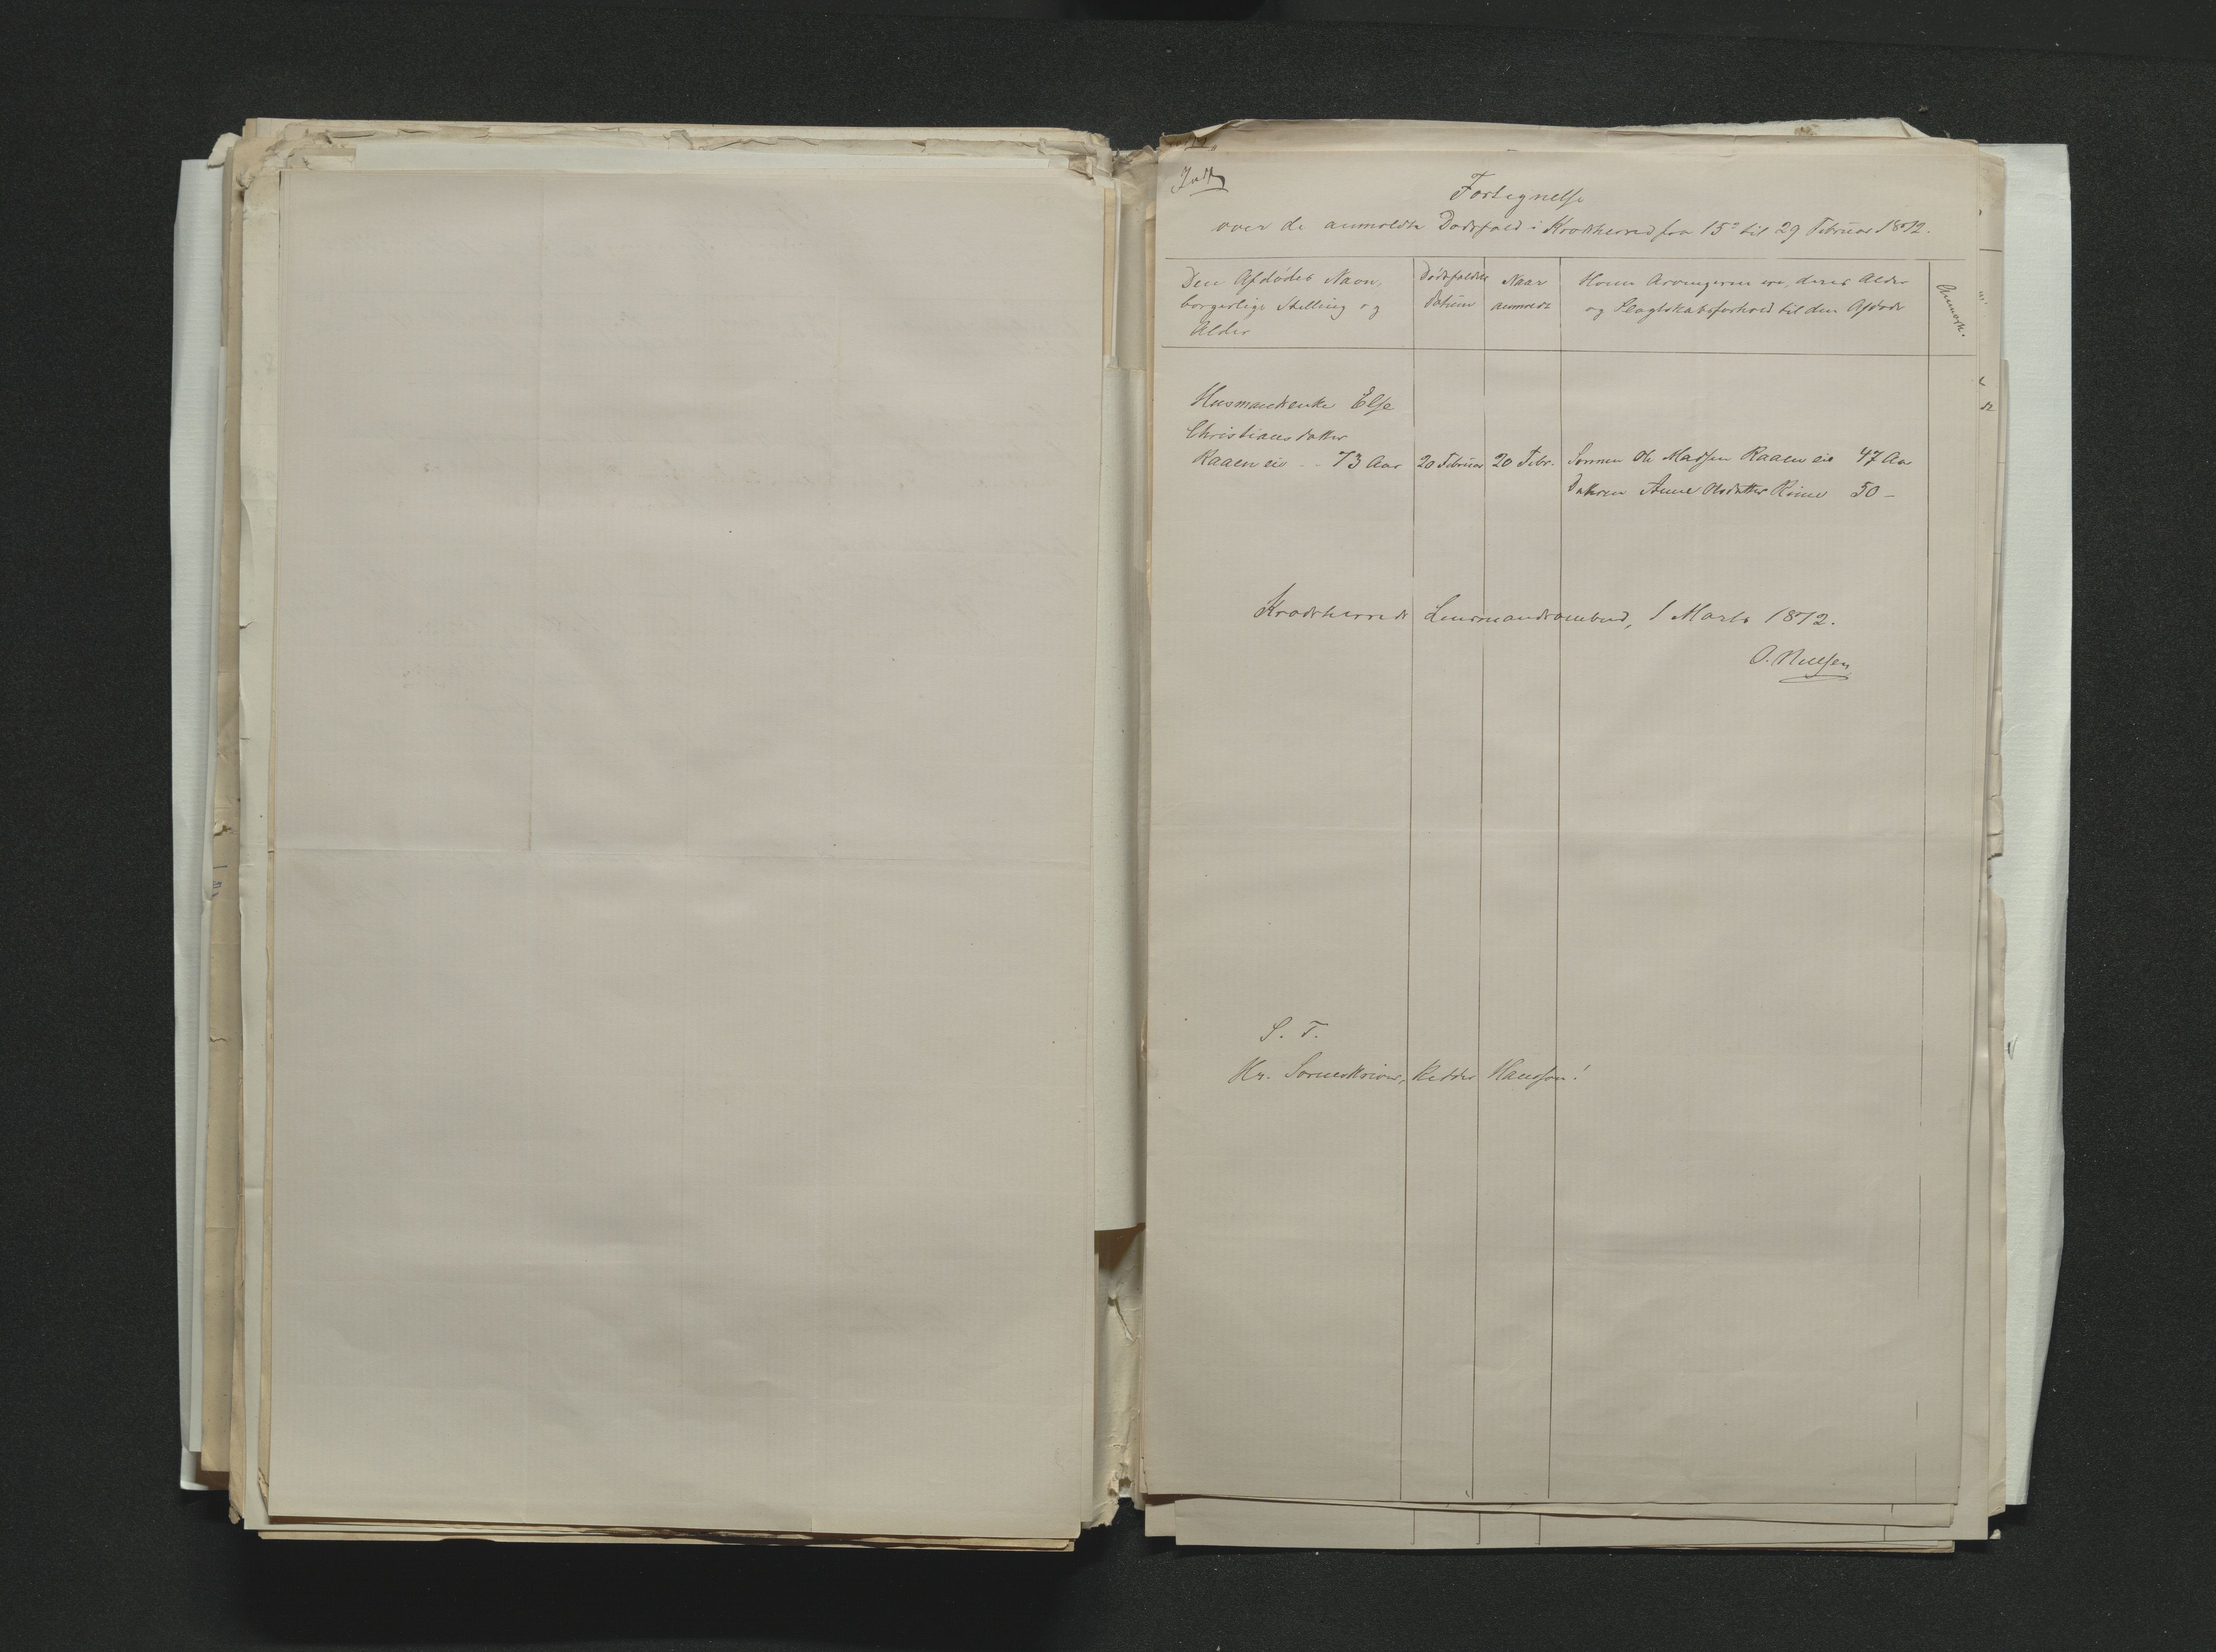 Fortegnelse
over de anmeldte Dødsfald i Krødsherred fra 15de til 29 Februar 1872.
Den Afdødes Navn,
borgerlige Stilling og
Alder
Dødsfaldets
Datum
Naar
anmeldt
Hvem Arvingerne ere, deres Alder
og Slægtskabsforhold til den Afdøde
Anmærk.
Husmandsenke Else
Christiansdatter
Raaen eie - - 73 Aar
20 Februar
20 Febr.
Sønnen Ole Madsen Raaen eie 47 Aar
Datteren Anne Olsdatter 50 -
Krødsherreds Lensmandsombud, 1 Marts 1872.
O. Nielsen
S. T.
Hr. Sorenskriver, Ridder Hansson!